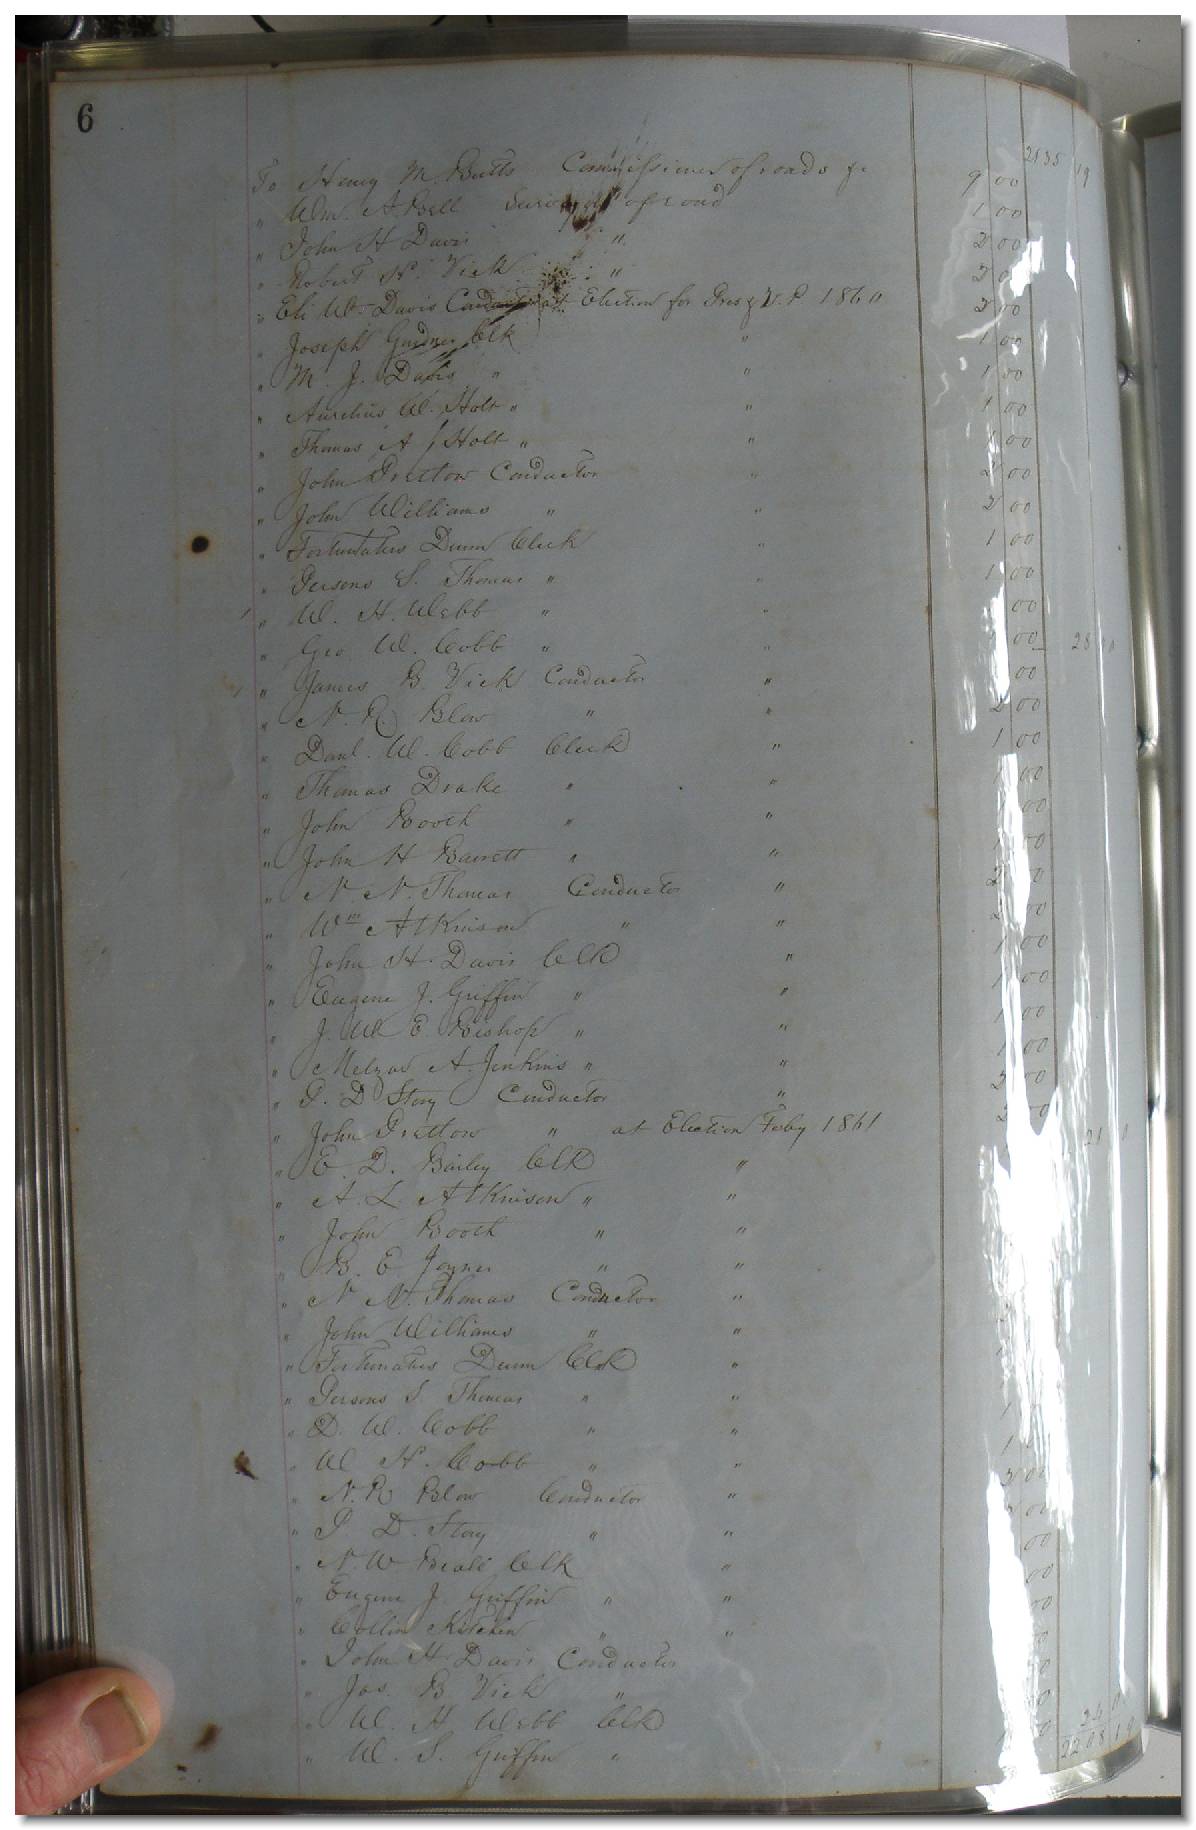 6
2135 19
To Henry M. Butts Commissioner of roads &c 9 00
" Wm. A Bell Surveyor of road 1 00
" John H Davis " " 2 00
" Robert H. Vick " "
" Eli W. Davis Conductor at Election for Pres & V. P 1860 2 00
" Joseph Gurdner Clk " 1 00
" M. J. Davis " " 1 00
" Aurelius W. Holt " " 1 00
" Thomas A Holt " " 1 00
" John Pretlow Conductor " 2 00
" John Williams " " 2 00
" Fortunatus Dunn Clerk " 1 00
" Persons S. Thomas " " 1 00
" W. H. Webb " " 00
" Geo W. Cobb " " 00 28
" James B. Vick Conductor " 00
" N. R. Blow " " 2 00
" Danl. W. Cobb Clerk " 1 00
" Thomas Drake " " 1 00
" John Booth " " 1 00
" John H Barrett " " 1 00
" N. N. Thomas Conductor " 2 00
" Wm Atkinson " " 2 00
" John H. Davis Clk " 1 00
" Eugene J. Griffin " " 1 00
" J. W. E. Bishop " " 1 00
" Melzar A. Jenkins " " 1 00
" P. D Story Conductor " 2 00
" John Pretlow " at Election Feby 1861 2 00
" E. D. Bailey Clk " 21
" A. L. Atkinson " "
" John Booth " "
" B. E. Joyner " "
" N. N. Thomas Conductor "
" John Williams " "
" Fortunatus Dunn Clk "
" Persons S. Thomas " "
" D. W. Cobb " " 1
" W H. Cobb " " 1
" N. R Blow Conductor " 2 00
" P. D. Story " " 2 00
" N. W Beale Clk " 00
" Eugene J. Griffin " " 00
" Collin Kitchin " " 00
" John H. Davis Conductor
" Jas. B Vick "
" W. H Webb Clk 24
" W. S. Griffin " 2208 19